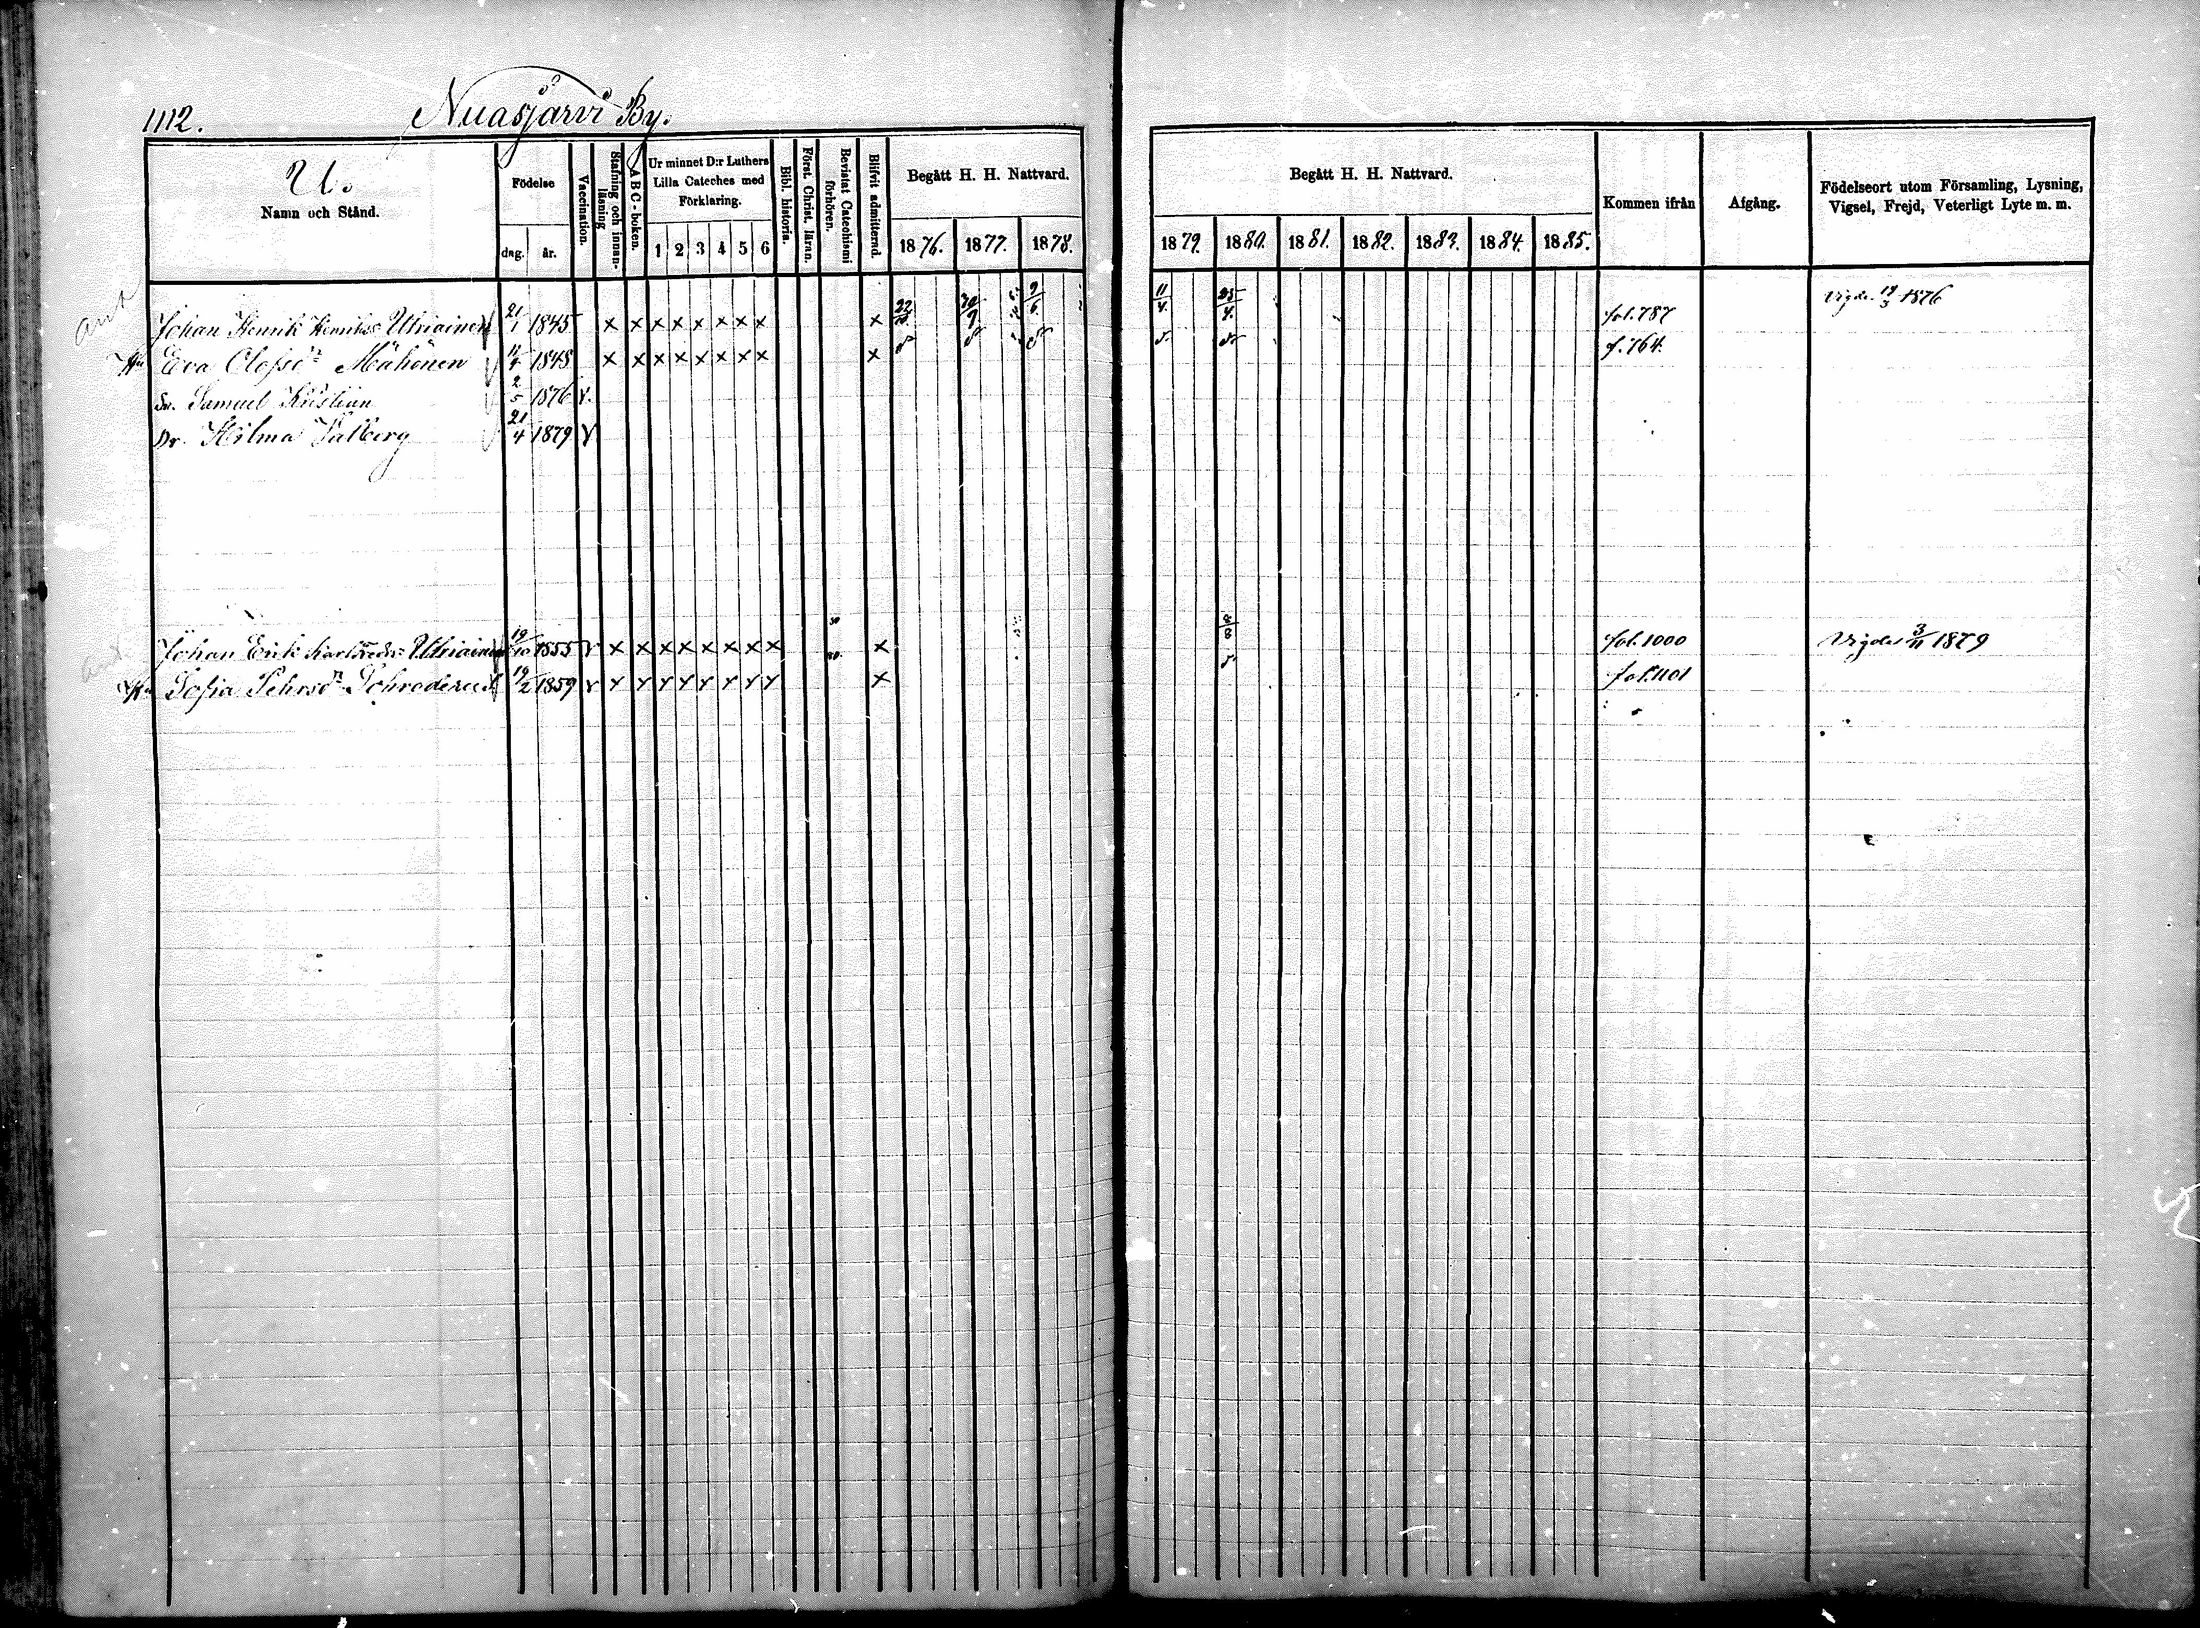 1112. Nuasjärvi By.
U.
Namn och Stånd.
Födelse
dag. år.
Vaccination.
Stafning och innan-läsning
A B C-boken.
Ur minnet D:r Luthers
Lilla Cateches med
Förklaring.
1 2 3 4 5 6
Bibl. historia.
Först. Christ. lära.
Bevistat Catechismi förhören.
Blifvit admitterad.
Begått H. H. Nattvard.
1876. 1877. 1878.
Begått H. H. Nattvard.
1879. 1880. 1881. 1882. 1883. 1884. 1885.
Kommen ifrån
Afgång.
Födelseort utom Församling, Lysning,
Vigsel, Frejd, Veterligt Lyte m. m.
Johan Henrik Henrikss Utriainen 21/1 1845 x x x x x x x x x 9/6. 11/4. 25/4. fol. 787 Vigde 19/3 1876
Hu Eva Olofsdr Mähönen 1848 x x x x x x x x x f. 764.
Sn. Samuel Kristian 2/5 1876 v.
Dr. Hilma Valborg 21/4 1879 v
Johan Erik Utriainen 19/10 1855 v x x x x x x x x x fol. 1000 Vigdes 3/11 1879
Hu Sofia Pehrsdr Schroderus 19/2 1859 v x v v v v v v x fol. 1101